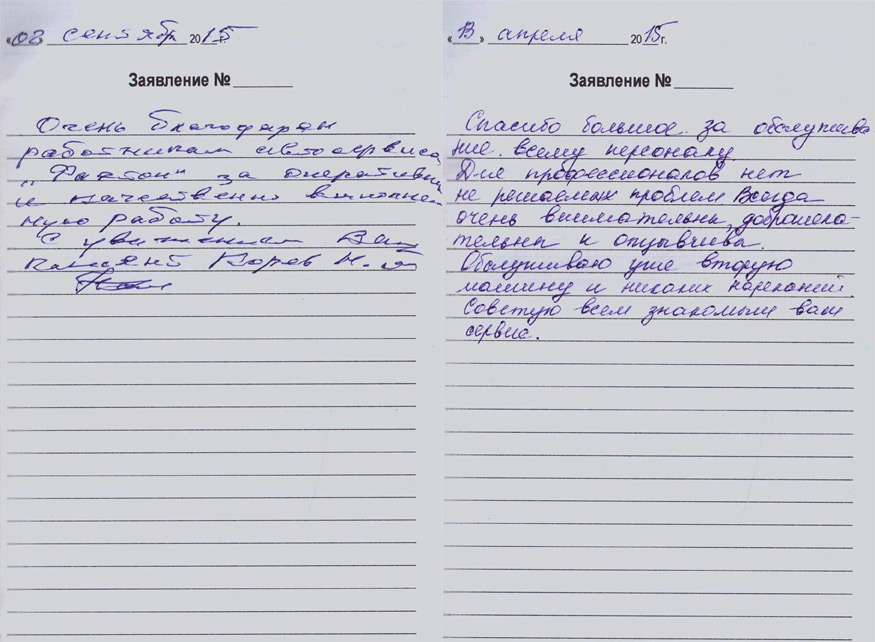 «02» сентябр 2015г.
Заявление №
Очень благодарен
работникам автосервиса
„Фаэтон" за оперативн
и качественно выполнен
ную работу.
С уважением Ваш
Н.
«13» апреля 2015г.
Заявление №
Спасибо большое за обслужива
ние всему персоналу
Для профессионалов нет
не решаемых проблем Всегда
очень внимательны, доброжела-
тельны и отзывчива.
Обслуживаю уже вторую
машину и никаких нареканий.
Советую всем знакомым ваш
сервис.